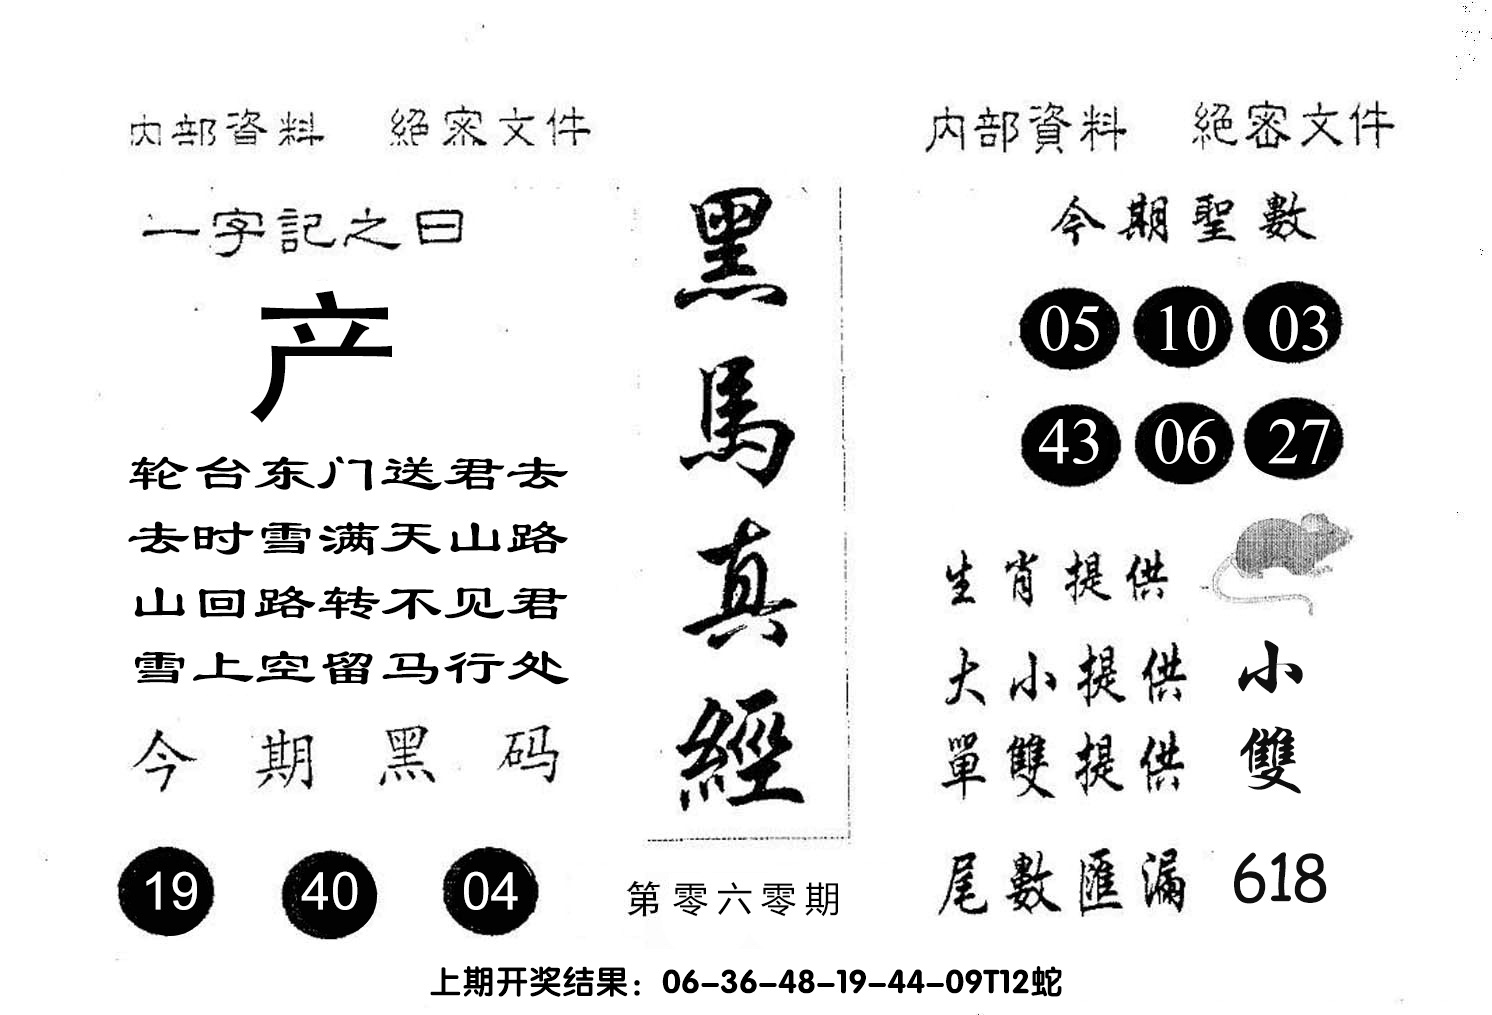 内部資料 絕密文件
一字記之曰
产
轮台东门送君去
去时雪满天山路
山回路转不见君
雪上空留马行处
今期黑码
19 40 04
黑馬真經
第零六零期
内部資料 絕密文件
今期聖數
05 10 03
43 06 27
生肖提供
大小提供 小
單雙提供 雙
尾數匯漏 618
上期开奖结果：06-36-48-19-44-09T12蛇